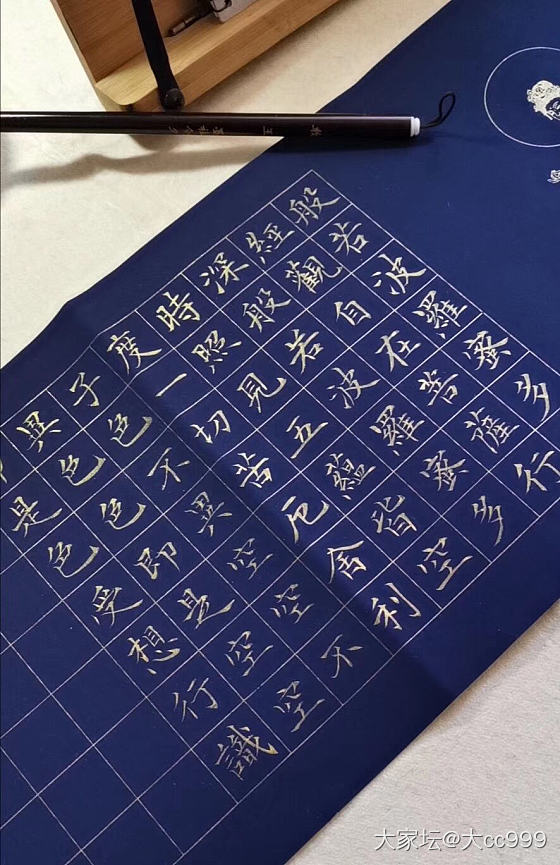 般若波羅蜜多
經觀自在菩薩行
深般若波羅蜜多
時照見五蘊皆空
度一切苦厄舍利
子色不異空空不
異色色即是空空
是色受想行識
大家坛@大cc999